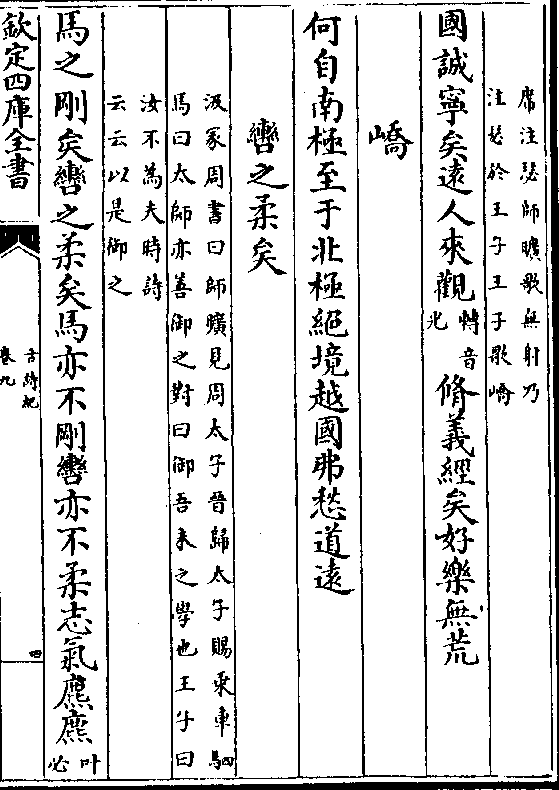 席注瑟師曠歌無射乃
注瑟於王子王子歌嶠
國誠寧矣遠人來觀轉音光脩義經矣好樂無荒
嶠
何自南極至于北極絕境越國弗愁道遠
轡之柔矣
汲冢周書曰師曠見周太子晉歸太子賜乘車駟
馬曰太師亦善御之對曰御吾未之學也王子曰
汝不為夫時詩
云云以是御之
馬之剛矣轡之柔矣馬亦不剛轡亦不柔志氣麃麃叶必
欽定四庫全書
古詩紀
卷九
四